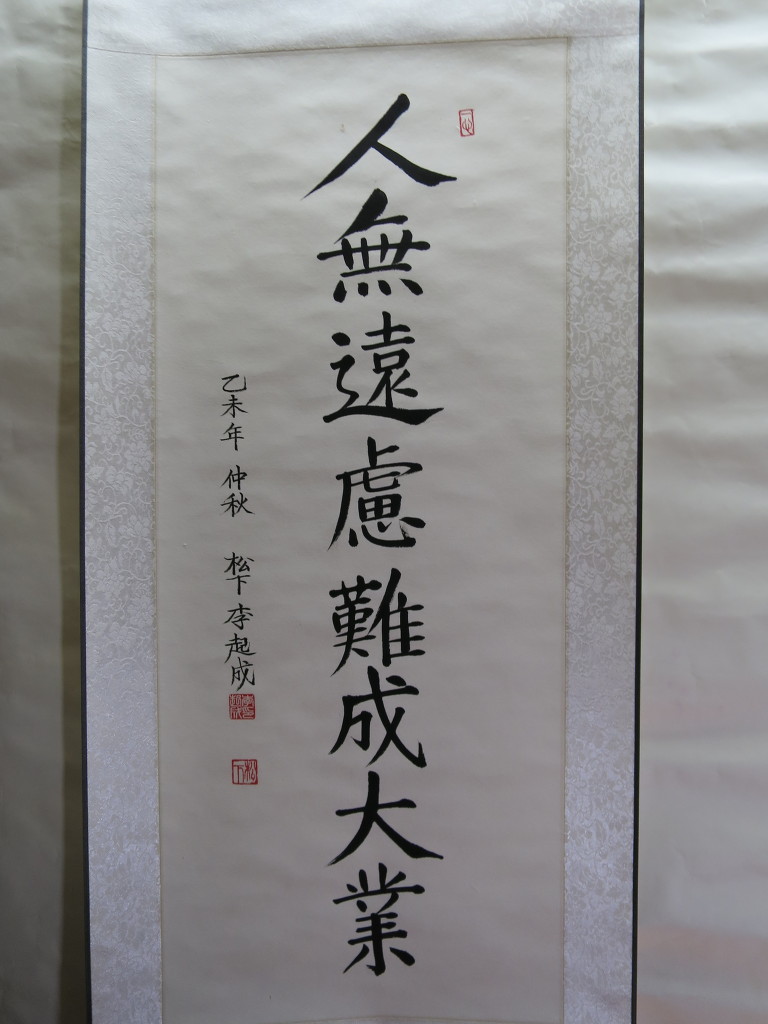 人無遠慮難成大業
乙未年 仲秋 松下 李起成
松下